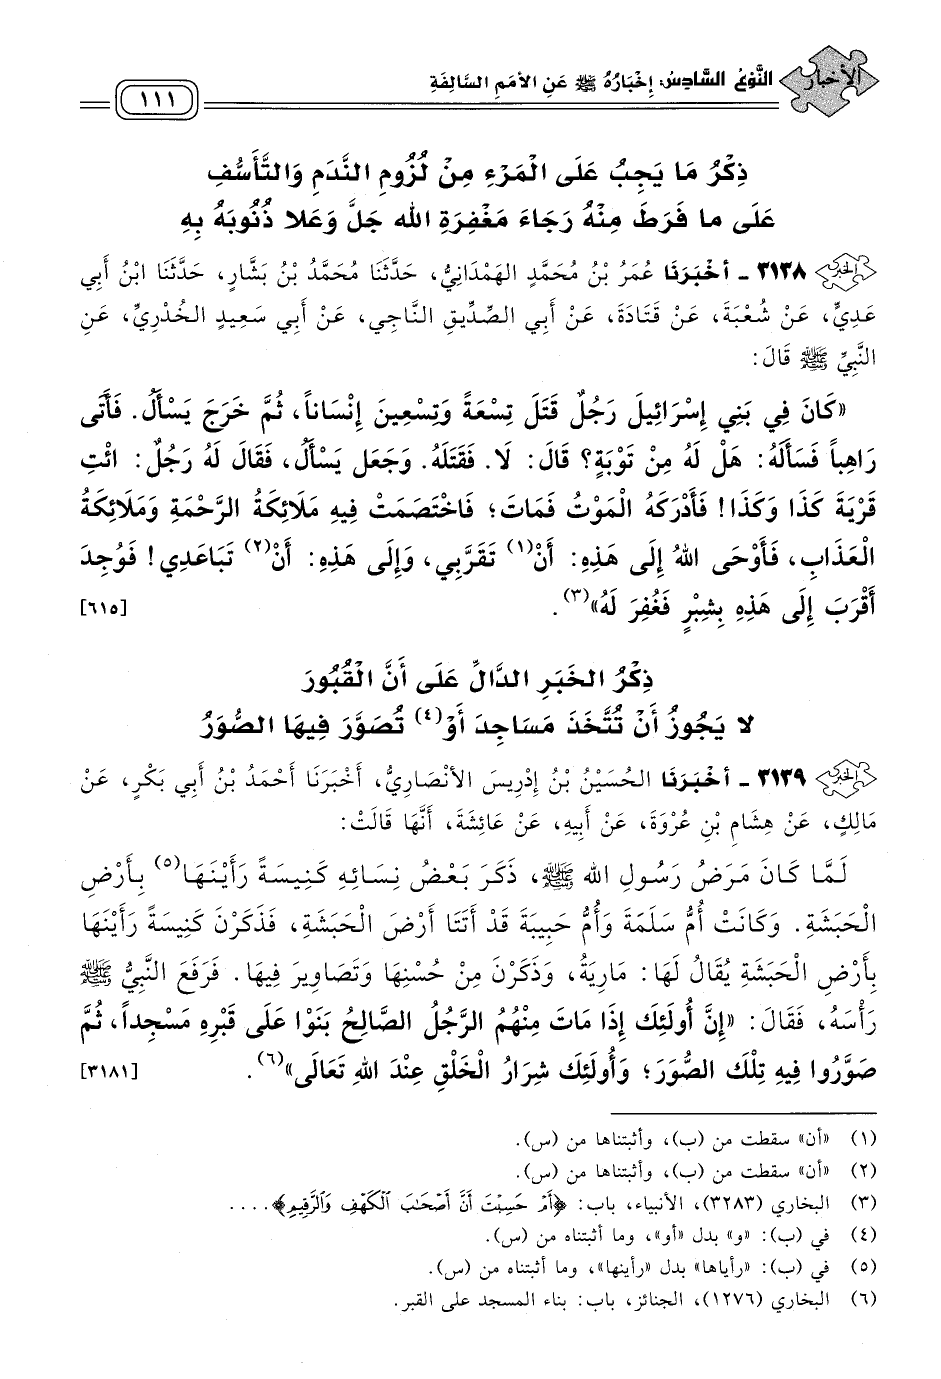 الأخبار
النَّوْعُ السَّادِسُ: إِخْبَارُهُ ﷺ عَنِ الأُمَمِ السَّالِفَةِ
١١١
ذِكْرُ مَا يَجِبُ عَلَى الْمَرْءِ مِنْ لُزُومِ النَّدَمِ وَالتَّأَسُّفِ
عَلَى ما فَرَطَ مِنْهُ رَجَاءَ مَغْفِرَةِ الله جَلَّ وَعَلا ذُنُوبَهُ بِهِ
الخبر ٣١٣٨ - أَخْبَرَنَا عُمَرُ بْنُ مُحَمَّدٍ الهَمْدَانِيُّ، حَدَّثَنَا مُحَمَّدُ بْنُ بَشَّارٍ، حَدَّثَنَا ابْنُ أَبِي
عَدِيٍّ، عَنْ شُعْبَةَ، عَنْ قَتَادَةَ، عَنْ أَبِي الصِّدِّيقِ النَّاجِي، عَنْ أَبِي سَعِيدٍ الخُدْرِيِّ، عَنِ
النَّبِيِّ ﷺ قَالَ:
«كَانَ فِي بَنِي إِسْرَائِيلَ رَجُلٌ قَتَلَ تِسْعَةً وَتِسْعِينَ إِنْسَاناً، ثُمَّ خَرَجَ يَسْأَلُ. فَأَتَى
رَاهِباً فَسَأَلَهُ: هَلْ لَهُ مِنْ تَوْبَةٍ؟ قَالَ: لَا. فَقَتَلَهُ. وَجَعَل يَسْأَلُ، فَقَالَ لَهُ رَجُلٌ: ائْتِ
قَرْيَةَ كَذَا وَكَذَا! فَأَدْرَكَهُ الْمَوْتُ فَمَاتَ؛ فَاخْتَصَمَتْ فِيهِ مَلَائِكَةُ الرَّحْمَةِ وَمَلَائِكَةُ
الْعَذَابِ، فَأَوْحَى اللهُ إِلَى هَذِهِ: أَنْ(١) تَقَرَّبِي، وَإِلَى هَذِهِ: أَنْ(٢) تَبَاعَدِي! فَوُجِدَ
أَقْرَبَ إِلَى هَذِهِ بِشِبْرٍ فَغُفِرَ لَهُ»(٣). [٦١٥]
ذِكْرُ الخَبَرِ الدَّالِّ عَلَى أَنَّ الْقُبُورَ
لا يَجُوزُ أَنْ تُتَّخَذَ مَسَاجِدَ أَوْ(٤) تُصَوَّرَ فِيهَا الصُّوَرُ
الخبر ٣١٣٩ - أَخْبَرَنَا الحُسَيْنُ بْنُ إِدْرِيسَ الأَنْصَارِيُّ، أَخْبَرَنَا أَحْمَدُ بْنُ أَبِي بَكْرٍ، عَنْ
مَالِكٍ، عَنْ هِشَامِ بْنِ عُرْوَةَ، عَنْ أَبِيهِ، عَنْ عَائِشَةَ، أَنَّهَا قَالَتْ:
لَمَّا كَانَ مَرَضُ رَسُولِ الله ﷺ، ذَكَرَ بَعْضُ نِسَائِهِ كَنِيسَةً رَأَيْنَهَا(٥) بِأَرْضِ
الْحَبَشَةِ. وَكَانَتْ أُمُّ سَلَمَةَ وَأُمُّ حَبِيبَةَ قَدْ أَتَتَا أَرْضَ الْحَبَشَةِ، فَذَكَرْنَ كَنِيسَةً رَأَيْنَهَا
بِأَرْضِ الْحَبَشَةِ يُقَالُ لَهَا: مَارِيَةُ، وَذَكَرْنَ مِنْ حُسْنِهَا وَتَصَاوِيرَ فِيهَا. فَرَفَعَ النَّبِيُّ ﷺ
رَأْسَهُ، فَقَالَ: «إِنَّ أُولَئِكَ إِذَا مَاتَ مِنْهُمُ الرَّجُلُ الصَّالِحُ بَنَوْا عَلَى قَبْرِهِ مَسْجِداً، ثُمَّ
صَوَّرُوا فِيهِ تِلْكَ الصُّوَرَ؛ وَأُولَئِكَ شِرَارُ الْخَلْقِ عِنْدَ اللهِ تَعَالَى»(٦). [٣١٨١]
(١) «أن» سقطت من (ب)، وأثبتناها من (س).
(٢) «أن» سقطت من (ب)، وأثبتناها من (س).
(٣) البخاري (٣٢٨٣)، الأنبياء، باب: ﴿أَمْ حَسِبْتَ أَنَّ أَصْحَابَ الْكَهْفِ وَالرَّقِيمِ﴾....
(٤) في (ب): «و» بدل «أو»، وما أثبتناه من (س).
(٥) في (ب): «رأياها» بدل «رأينها»، وما أثبتناه من (س).
(٦) البخاري (١٢٧٦)، الجنائز، باب: بناء المسجد على القبر.